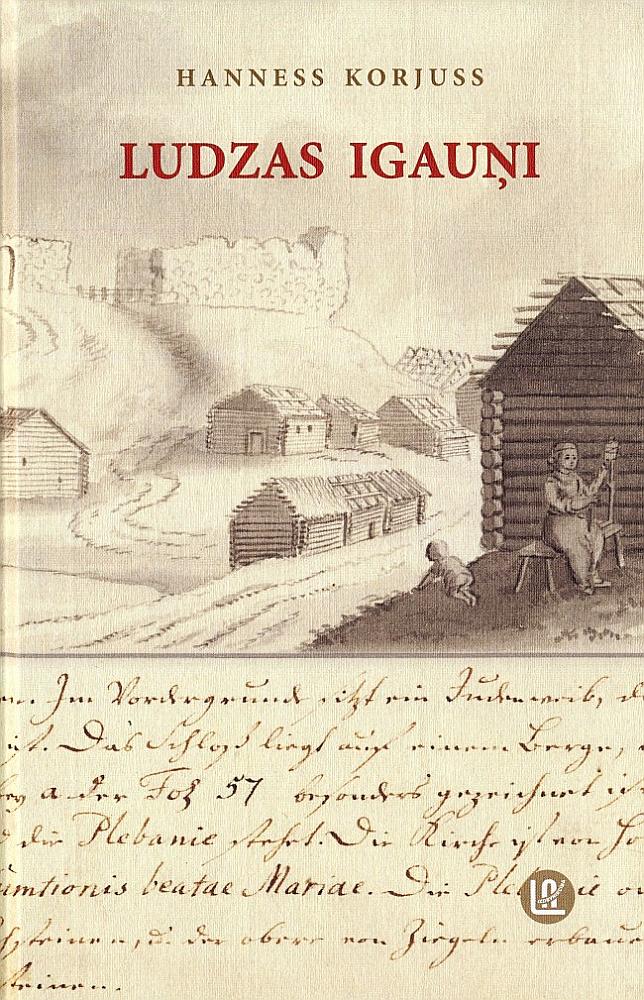 HANNESS KORJUSS
LUDZAS IGAUŅI
en. Im Vordergrunde sitzt ein Judenweib, d
nt. Das Schloß liegt auf einem Berge,
bey a der Fol 57 besonders gezeichnet ist
die Plebanie stehet. Die Kirche ist von Ho
umtionis beatae Mariae. Die Plebanie
steinen, u. der obere von Ziegeln erbaue
steinen.